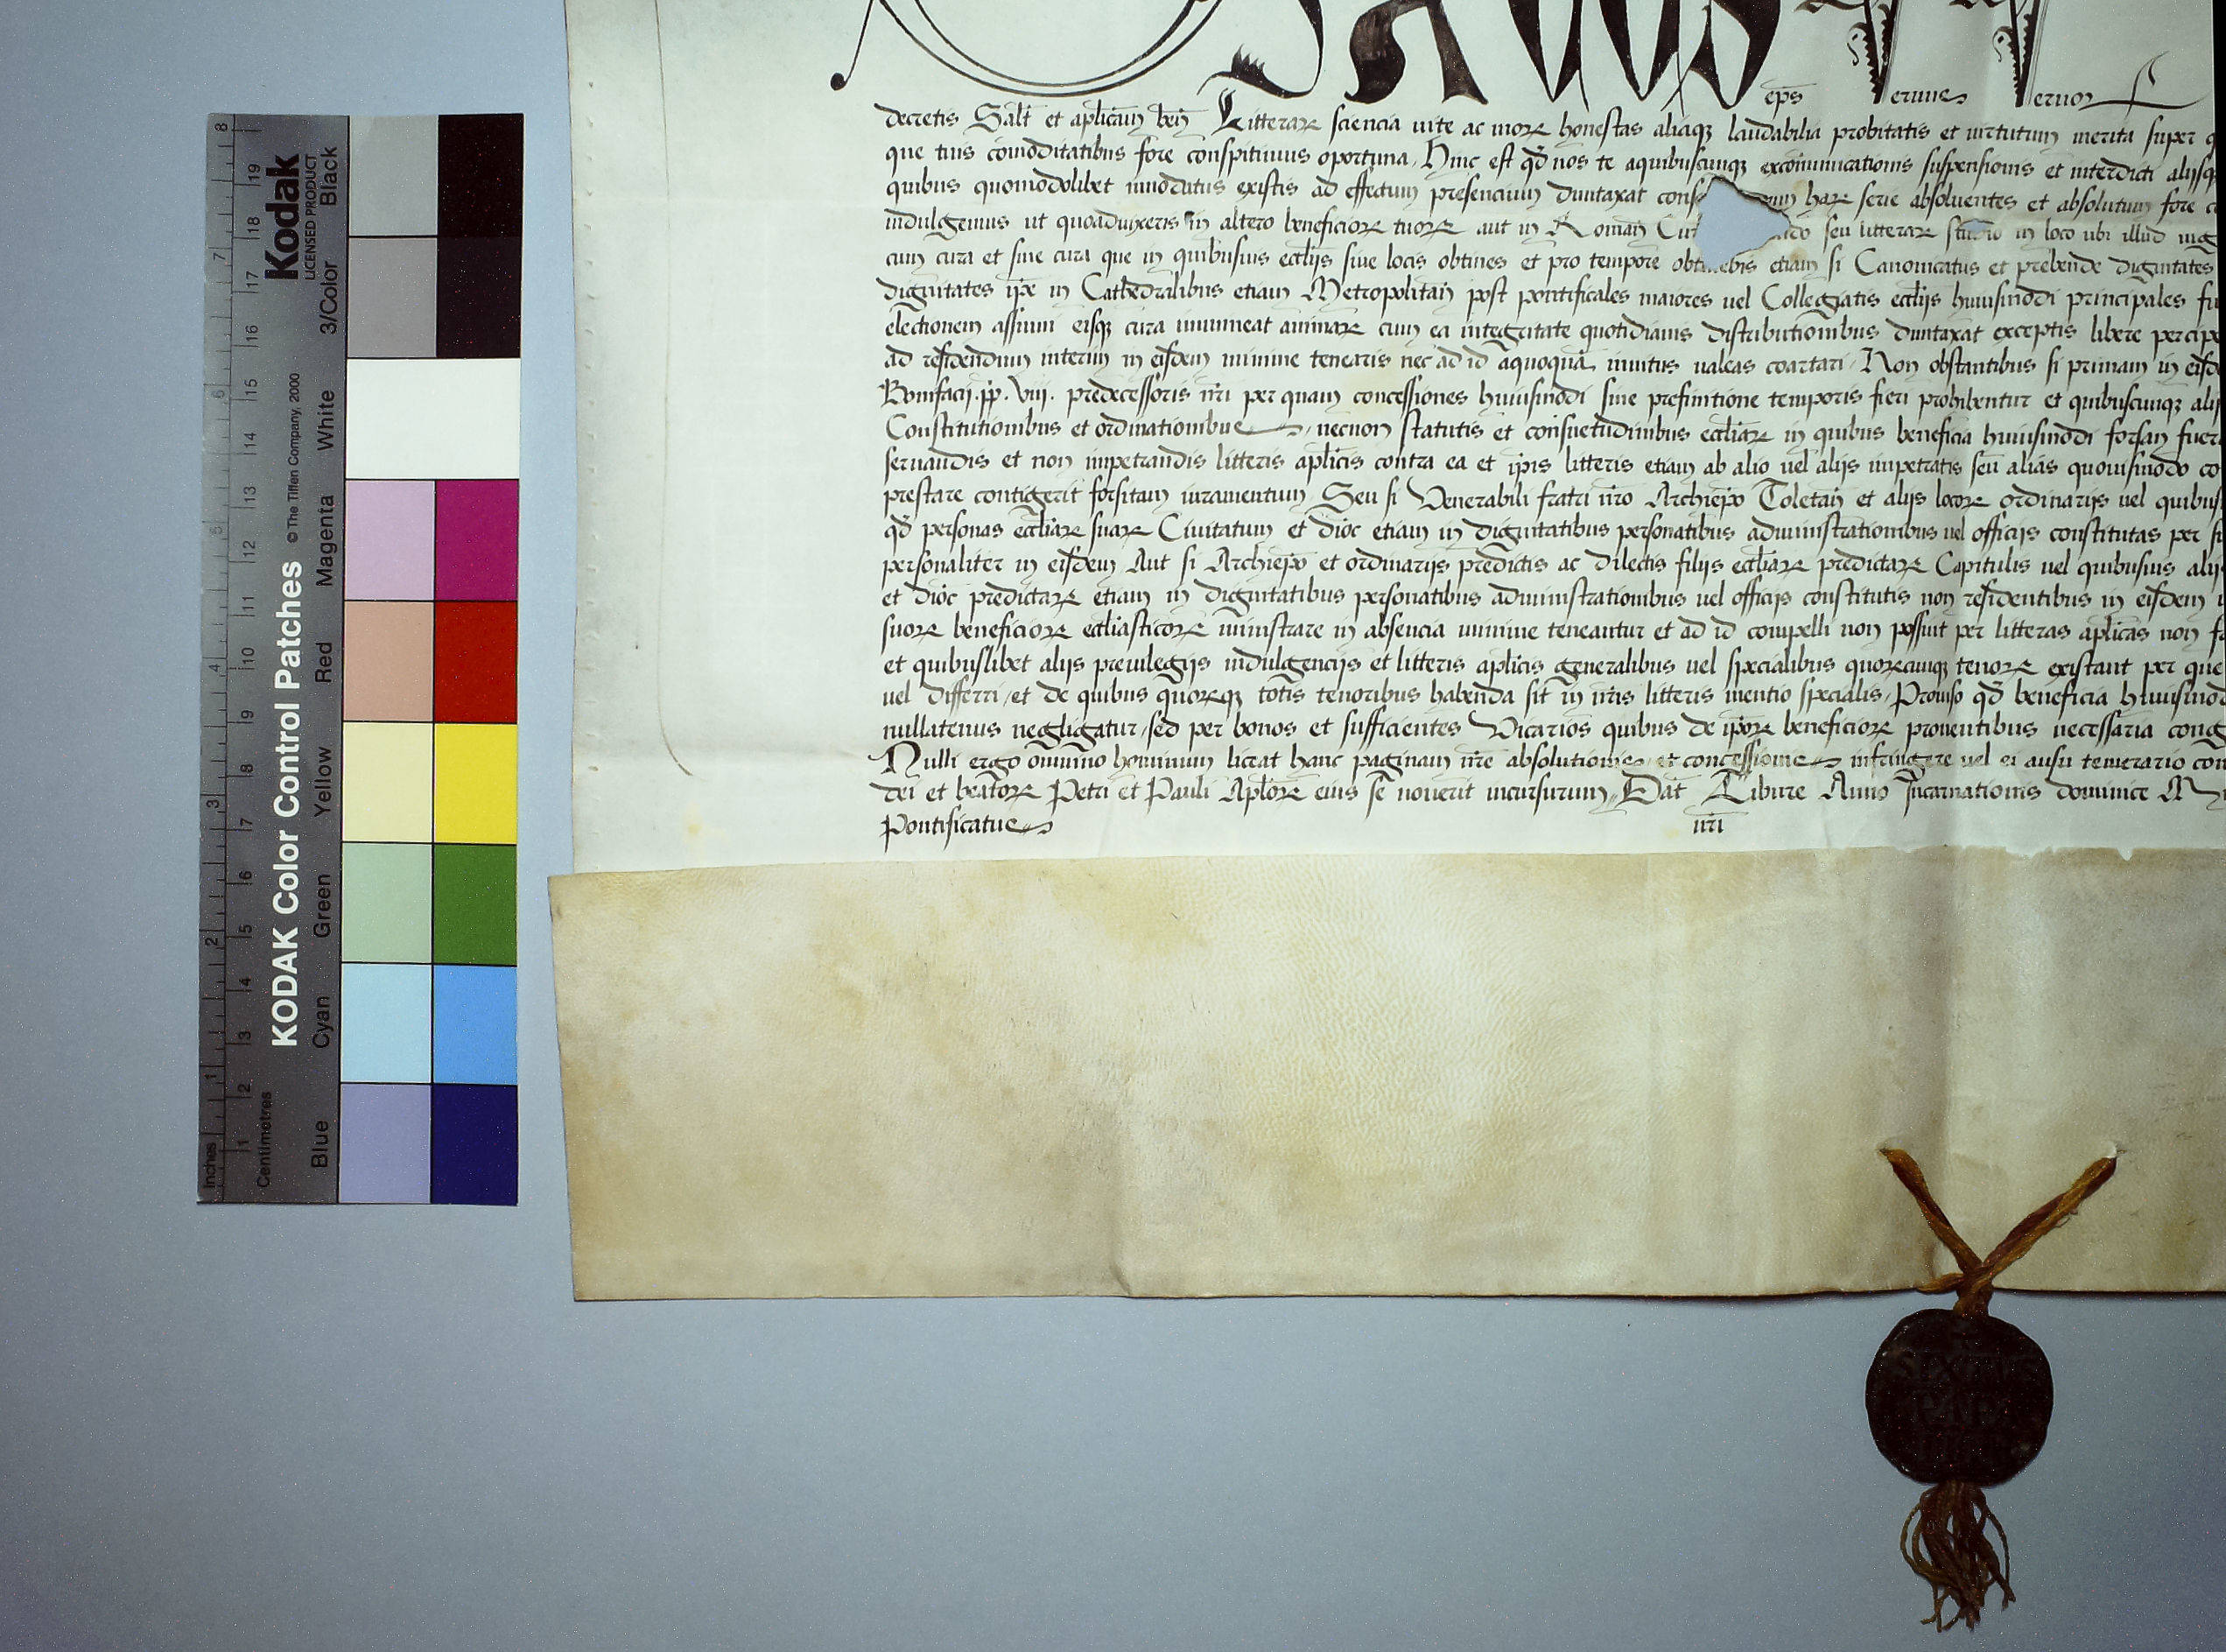 KODAK Color Control Patches © The Tiffen Company, 2000 Kodak
LICENSED PRODUCT
Blue Cyan Green Yellow Red Magenta White 3/Color Black
Inches 1 2 3 4 5 6 7 8
Centimetres 1 2 3 4 5 6 7 8 9 10 11 12 13 14 15 16 17 18 19
ep̄s eruus eruor
decretis Salt̄ et ap̄licam̄ beñ Litterarꝝ sciencia uite ac morꝝ honestas aliaqꝫ laudabilia probitatis et uirtutum merita super
que tuis com̄oditatibus fore conspicimus oportuna, Hinc est qđ nos te aquibuscunqꝫ excom̄unicationis suspensionis et interdicti alijsqꝫ
quibus quomodolibet innodatus existis ad effectum presencium duntaxat cons harꝝ serie absoluentes et absolutum fore
indulgemus ut quoaduixeris in altero beneficiorꝝ tuorꝝ aut in Roman̄ Cur seu litterarꝝ studio in loco ubi illud
cum cura et sine cura que in quibusuis eccl̄ijs siue locis obtines et pro tempore obtinebis etiam si Canonicatus et prebende dignitates
dignitates ip̄e in Cathedralibus etiam Metropolitan̄ post pontificales maiores uel Collegiatis eccl̄ijs huiusmodi principales
electionem assumi eisqꝫ cura imineat animarꝝ cum ea integritate quotidianis distributionibus duntaxat exceptis libere percipe
ad residendum interim in eisdem minime tenearis nec ad id aquoquā inuitus ualeas coartari, Non obstantibus si primam in eisd
Bonifacij .pp. viij. predecessoris nr̄i per quam concessiones huiusmodi sine prefinitione temporis fieri prohibentur et quibuscunqꝫ alij
Constitutionibus et ordinationibus, necnon statutis et consuetudinibus eccl̄iarꝝ in quibus beneficia huiusmodi forsan fuer
seruandis et non impetrandis litteris ap̄licis contra ea et ip̄is litteris etiam ab alio uel alijs impetratis seu alias quouismodo co
prestare contigerit forsitan iuramentum, Seu si Venerabili fratri nr̄o Archiep̄o Toletan̄ et alijs locorꝝ ordinarijs uel quibus
qđ personas eccl̄iarꝝ suarꝝ Ciuitatum et dioc̄ etiam in dignitatibus personatibus administrationibus uel officijs constitutas per
personaliter in eisdem Aut si Archiep̄o et ordinarijs predictis ac dilectis filijs eccl̄iarꝝ predictarꝝ Capitulis uel quibusuis alij
et dioc̄ predictarꝝ etiam in dignitatibus personatibus administrationibus uel officijs constitutis non residentibus in eisdem
suorꝝ beneficiorꝝ eccl̄iasticorꝝ ministrare in absencia minime teneantur et ad id compelli non possint per litteras ap̄licas non
et quibuslibet alijs preuilegijs indulgencijs et litteris ap̄licis generalibus uel specialibus quorꝝcunqꝫ tenorꝝ existant per que
uel differri, et de quibus quorꝝqꝫ totis tenoribus habenda sit in nr̄is litteris mentio specialis, Prouiso qđ beneficia huiusmod
nullatenus negligatur, sed per bonos et sufficientes Vicarios quibus de ip̄orꝝ beneficiorꝝ prouentibus necessaria cong
Nulli ergo omnino hominum liceat hanc paginam nr̄e absolutionis et concessionis infringere uel ei ausu temerario con
dei et beatorꝝ Petri et Pauli Apl̄orꝝ eius se nouerit incursurum, Dat̄ Tibure Anno Incarnationis dominice
Pontificatus nr̄i
SIXTVS
PAPA